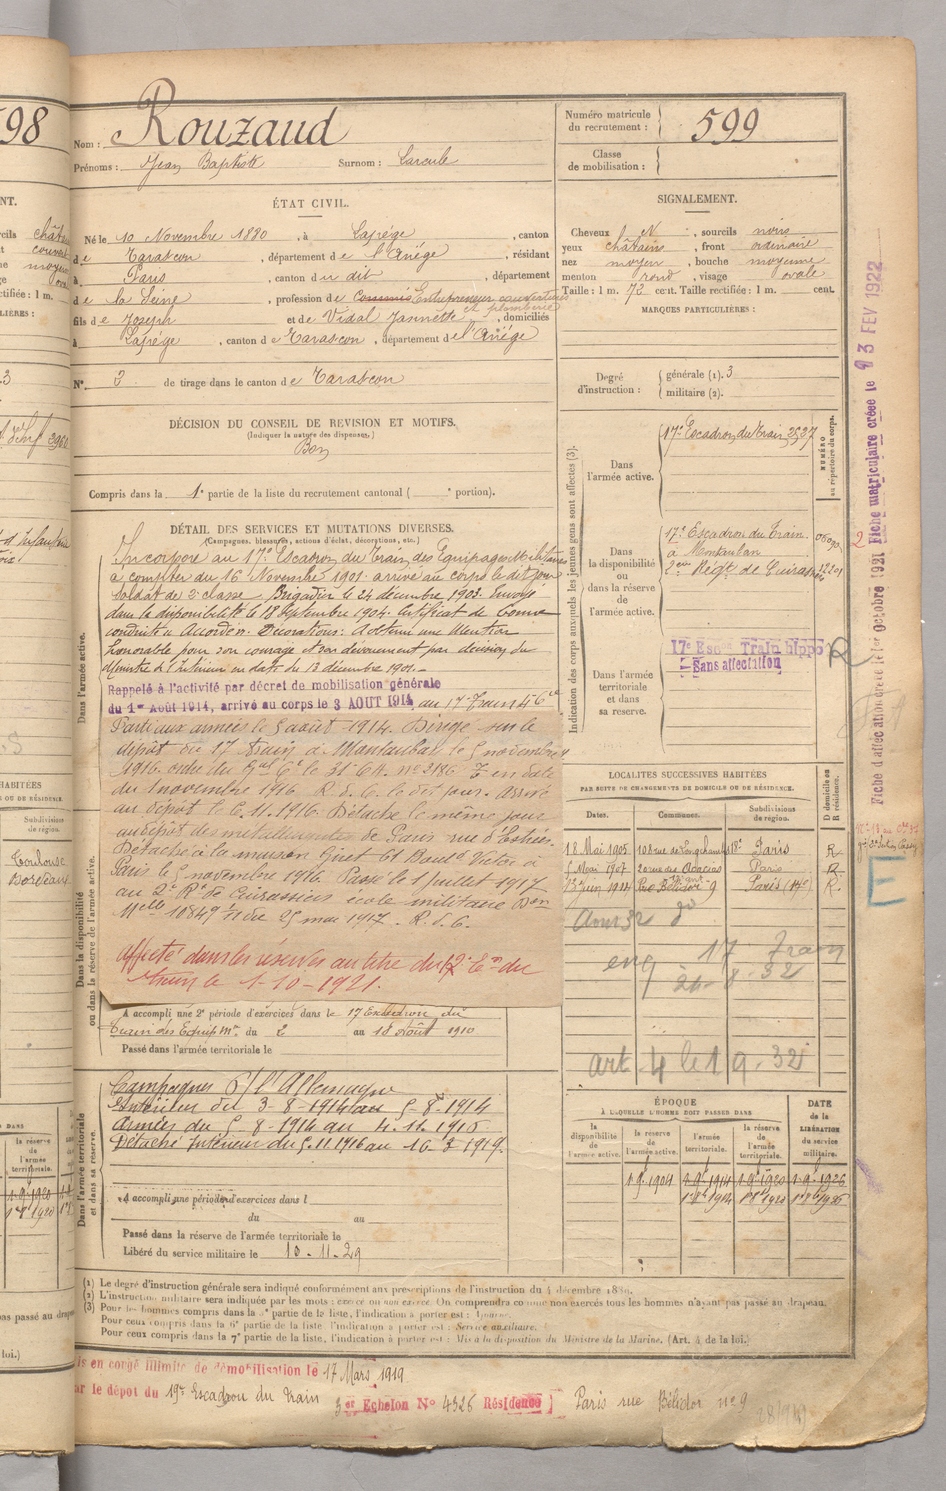 598
Nom : Rouzaud
Prénoms : Jean Baptiste Surnom : Laroule
Numéro matricule du recrutement : 599
Classe de mobilisation :
ÉTAT CIVIL.
Né le 10 Novembre 1880, à Lapège, canton
de Tarascon, département de l'Ariége, résidant
à Paris, canton du dit, département
de la Seine, profession de Commis Entrepreneur couverture et plomberie
fils de Joseph et de Vidal Jannette, domiciliés
à Lapège, canton de Tarascon, département de l'Ariége
N° 3 de tirage dans le canton de Tarascon
SIGNALEMENT.
Cheveux N, sourcils noirs
yeux châtains, front ordinaire
nez moyen, bouche moyenne
menton rond, visage ovale
Taille : 1 m. 72 cent. Taille rectifiée : 1 m. cent.
MARQUES PARTICULIÈRES :
Degré d'instruction : générale (1). 3
militaire (2).
DÉCISION DU CONSEIL DE REVISION ET MOTIFS.
(Indiquer la nature des dispenses.)
Bon
Compris dans la 1e partie de la liste du recrutement cantonal ( portion).
DÉTAIL DES SERVICES ET MUTATIONS DIVERSES.
(Campagnes, blessures, actions d'éclat, décorations, etc.)
Dans l'armée active.
Incorporé au 17e Escadron du Train des Equipages Militaires
à compter du 16 Novembre 1901 arrivé au corps le dit jour
Soldat de 2e classe Brigadier le 24 décembre 1903. Envoyé
dans la disponibilité le 18 Septembre 1904. Certificat de bonne
conduite « Accordé ». Décorations: A obtenu une Mention
honorable pour son courage et son dévouement par décision du
Ministre de l'Intérieur en date du 13 décembre 1901.
Rappelé à l'activité par décret de mobilisation générale
du 1er Août 1914, arrivé au corps le 3 AOUT 1914, au 17e Train 46e
Parti aux armées le 5 août 1914. Dirigé sur le
dépôt du 17 Train à Montauban le 5 novembre
1916 ordre du Gal Ct le 31 C.A. n° 3186 en date
du 1 novembre 1916 R.d.C. le dit jour. Arrivé
au dépôt le 6.11.1916. Détaché le même jour
au dépôt des métallurgistes de Paris
Détaché à la maison
Paris le 5 novembre 1916. Passé le 1 juillet 1917
au 2e Rt de Cuirassiers école militaire Don
Melle 10849 du 25 mai 1917. R.d.C.
Affecté dans les réserves au titre du Em du
Train le 1-10-1921.
Dans la disponibilité ou dans la réserve de l'armée active.
A accompli une 2e période d'exercices dans le 17 Escadron du
Train des Equip. Mres du 2 au 18 Août 1910
Passé dans l'armée territoriale le
Dans l'armée territoriale et dans sa réserve.
Campagnes C/ l'Allemagne
Intérieur du 3-8-1914 au 5-8-1914
Armées du 5-8-1914 au 4.11.1916
Détaché Intérieur du 5.11.1916 au 16-3-1919.
A accompli une période d'exercices dans l
du au
Passé dans la réserve de l'armée territoriale le
Libéré du service militaire le 10-11-29
Indication des corps auxquels les jeunes gens sont affectés (3).
NUMÉRO au répertoire du corps.
Dans l'armée active. 17e Escadron du Train 2537
Dans la disponibilité ou dans la réserve de l'armée active.
17e Escadron du Train
à Montauban
2eme Régt de Cuirassiers
Dans l'armée territoriale et dans sa réserve.
17e Esc Train hippo
Sans affectation
R
LOCALITÉS SUCCESSIVES HABITÉES
PAR SUITE DE CHANGEMENTS DE DOMICILE OU DE RÉSIDENCE.
Dates. Communes. Subdivisions de région. D domicile ou R résidence.
18 Mai 1905 108 rue de Longchamp Paris R
5 Mai 1907 20 rue des Acacias Paris R
13 Juin 1914 Rue Bélidor 9 Paris (17e) R.
17 Train
26-8-32
art 4 le 1 9-32
E
ÉPOQUE
À LAQUELLE L'HOMME DOIT PASSER DANS
la disponibilité de l'armée active.
la réserve de l'armée active.
l'armée territoriale.
la réserve de l'armée territoriale.
DATE de la LIBÉRATION du service militaire.
1 9 1904 1 9 1914 1 9 1920 1 9 1926
Fiche d'affectation créée le 1er Octobre 1921 Fiche matriculaire créée le 23 FEV 1922
(1) Le degré d'instruction générale sera indiqué conformément aux prescriptions de l'instruction du 4 décembre 1889.
(2) L'instruction militaire sera indiquée par les mots : exercé ou non exercé. On comprendra comme non exercés tous les hommes n'ayant pas passé au drapeau.
(3) Pour les hommes compris dans la 5e partie de la liste, l'indication à porter est :
Pour ceux compris dans la 6e partie de la liste l'indication à porter est : Service auxiliaire.
Pour ceux compris dans la 7e partie de la liste, l'indication à porter est : Mis à la disposition du Ministre de la Marine. (Art. 4 de la loi.)
is en congé illimité de démobilisation le 17 Mars 1919
ar le dépôt du 19e Escadron du Train 3er Echelon N° 4326 Résidence Paris rue Bélidor n° 9